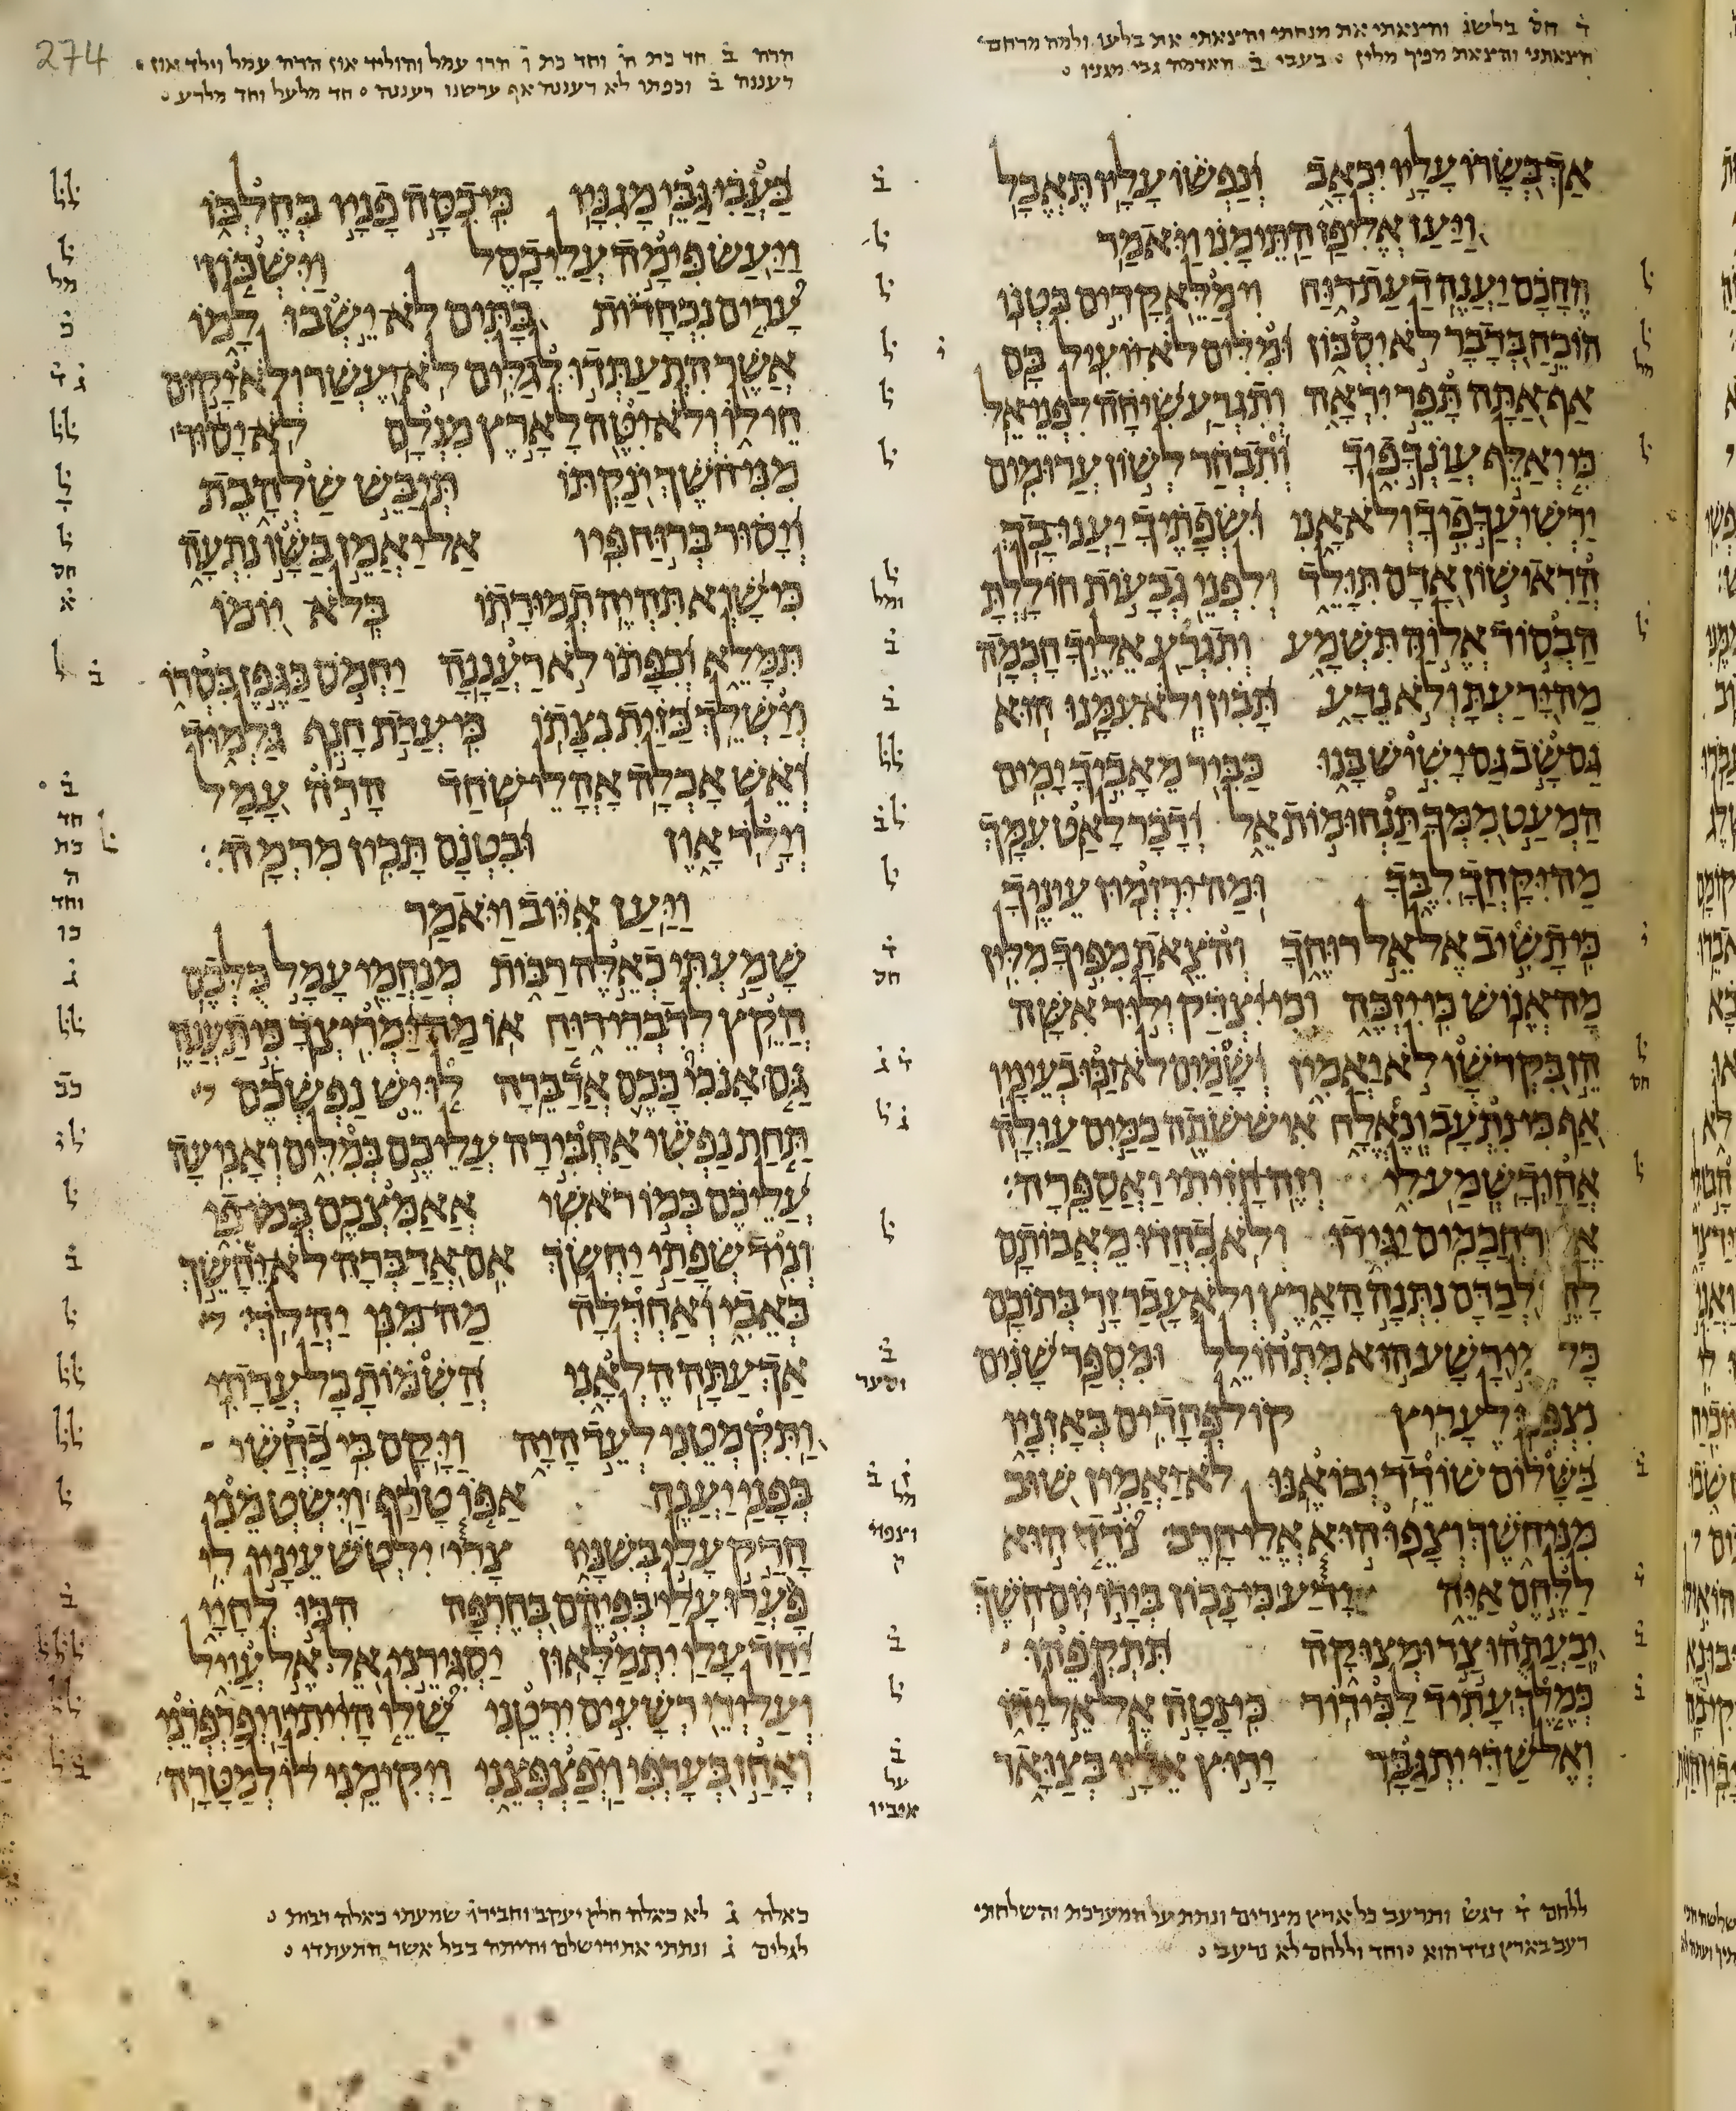 ד חס בלשנ והצאתי את מנחתי והצאתי את בלעו ולמה מרחם
הצאתני והצאת מפיך מלין ○ בעבי ב האדמה גבי מגניו ○
אך בשרו עליו יכאב ונפשו עליו תאבל
ויען אליפז התימני ויאמר
החכם יענה דעת רוח וימלא קדים בטנו
הוכח בדבר לא יסכון ומלים לא יועיל בם
אף אתה תפר יראה ותגרע שיחה לפני אל
כי יאלף עונך פיך ותבחר לשון ערומים
ירשיעך פיך ולא אני ושפתיך יענו בך
הראישון אדם תולד ולפני גבעות חוללת
הבסוד אלוה תשמע ותגרע אליך חכמה
מה ידעת ולא נדע תבין ולא עמנו הוא
גם שב גם ישיש בנו כביר מאביך ימים
המעט ממך תנחומות אל ודבר לאט עמך
מה יקחך לבך ומה ירזמון עיניך
כי תשיב אל אל רוחך והצאת מפיך מלין
מה אנוש כי יזכה וכי יצדק ילוד אשה
הן בקדשו לא יאמין ושמים לא זכו בעיניו
אף כי נתעב ונאלח איש שתה כמים עולה
אחוך שמע לי וזה חזיתי ואספרה
חכמים יגידו ולא כחדו מאבותם
לבדם נתנה הארץ ולא עבר זר בתוכם
כל ימי רשע הוא מתחולל ומספר שנים
נצפנו לעריץ קול פחדים באזניו
בשלום שודד יבואנו לא יאמין שוב
מני חשך וצפו הוא אלי חרב נדד הוא
ללחם איה ידע כי נכון בידו יום חשך
יבעתהו צר ומצוקה תתקפהו
כמלך עתיד לכידור כי נטה אל אל ידו
ואל שדי יתגבר ירוץ אליו בצואר
ללחם ד דגש ותרעב כל ארץ מצרים ונתת על המערכת והשלחתי
רעב בארץ נדד הוא ○ וחד וללחם לא נרעב ○
274
הרה ב חד כת ה וחד כת ו הרו עמל והוליד און הרה עמל וילד און ○
רעננה ב וכפתו לא רעננה אף ערשנו רעננה ○ חד מלעל וחד מלרע ○
בעבי גבי מגניו כי כסה פניו בחלבו
ויעש פימה עלי כסל וישכון
ערים נכחדות בתים לא ישבו למו
אשר התעתדו לגלים לא יעשר ולא יקום
חילו ולא יטה לארץ מנלם לא יסור
מני חשך ינקתו תיבש שלהבת
ויסור ברוח פיו אל יאמן בשו נתעה
כי שוא תהיה תמורתו בלא יומו
תמלא וכפתו לא רעננה יחמס כגפן בסרו
וישלך כזית נצתו כי עדת חנף גלמוד
ואש אכלה אהלי שחד הרה עמל
וילד און ובטנם תכין מרמה
ויען איוב ויאמר
שמעתי כאלה רבות מנחמי עמל כלכם
הקץ לדברי רוח או מה ימריצך כי תענה
גם אנכי ככם אדברה לו יש נפשכם
תחת נפשי אחבירה עליכם במלים ואניעה
עליכם במו ראשי אאמצכם במו פי
וניד שפתי יחשך אם אדברה לא יחשך
כאבי ואחדלה מה מני יהלך
אך עתה הלאני השמות כל עדתי
ותקמטני לעד היה ויקם בי כחשי
בפני יענה אפו טרף וישטמני
חרק עלי בשניו צרי ילטש עיניו לי
פערו עלי בפיהם בחרפה הכו לחיי
יחד עלי יתמלאון יסגירני אל אל עויל
ועל ידי רשעים ירטני שלו הייתי ויפרפרני
ואחז בערפי ויפצפצני ויקימני לו למטרה
כאלה ג לא כאלה חלק יעקב וחבירו שמעתי כאלה רבות ○
לגלים ג ונתתי את ירושלם והיתה בבל אשר התעתדו ○